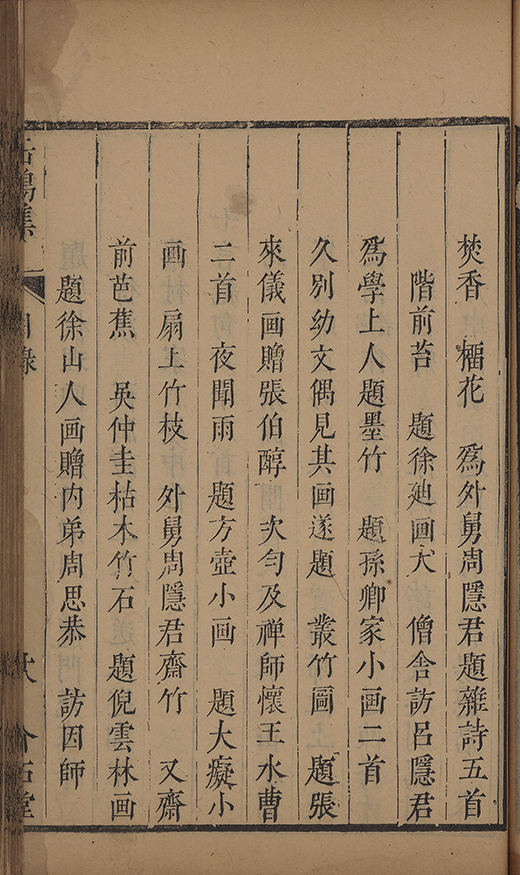 焚香　榴花　爲外舅周隱君題雜詩五首
階前苔　題徐廸画犬　僧舎訪呂隱君
爲學上人題墨竹　題孫卿家小画二首
久別幼文偶見其画遂題　叢竹圖　題張
來儀画贈張伯醇　次勻及禅師懷王水曹
二首　夜聞雨　題方壺小画　題大癡小
画　扇上竹枝　外舅周隱君齋竹　又齋
前芭蕉　吳仲圭枯木竹石　題倪雲林画
題徐山人画贈内弟周思恭　訪因師
鳴集　目錄　　堂